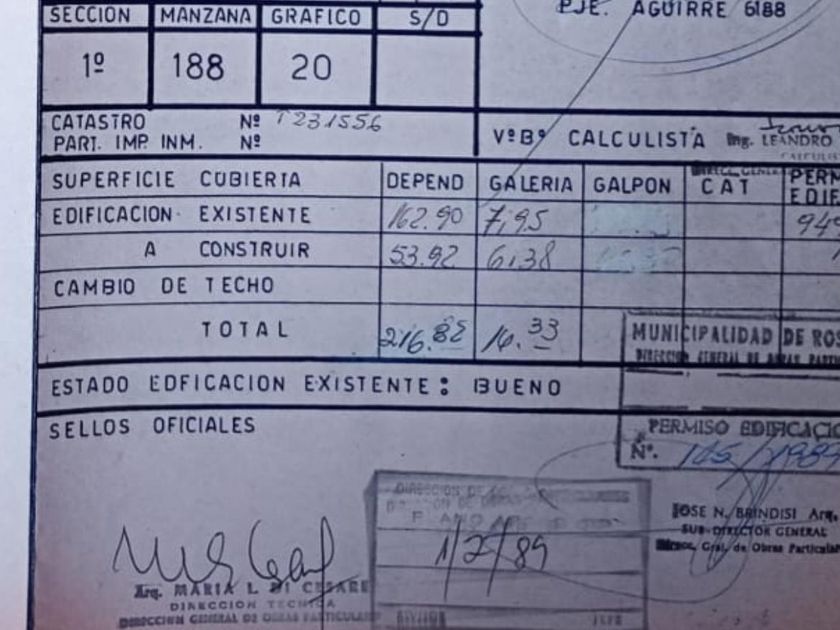 PJE. AGUIRRE 6188
SECCION MANZANA GRAFICO S/D
1º 188 20
CATASTRO Nº T231556
PART. IMP. INM. Nº
VºBº CALCULISTA Ing. LEANDRO
SUPERFICIE CUBIERTA DEPEND GALERIA GALPON CAT PERM
EDIF
EDIFICACION EXISTENTE 162.90 7,95
A CONSTRUIR 53.92 6,38
CAMBIO DE TECHO
TOTAL 216.82 14.33
MUNICIPALIDAD DE ROS
DIRECCION GENERAL DE OBRAS PART
ESTADO EDFICACION EXISTENTE: BUENO
SELLOS OFICIALES
PERMISO EDIFICACIO
Nº.
JOSE N. BRINDISI Arq.
SUB-DIRECTOR GENERAL
Direcc. Gral. de Obras Particula
1/2/89
Arq. MARIA L. DI CESARE
DIRECCION TECNICA
DIRECCION GENERAL DE OBRAS PARTICULARES
DIVISION JEFE